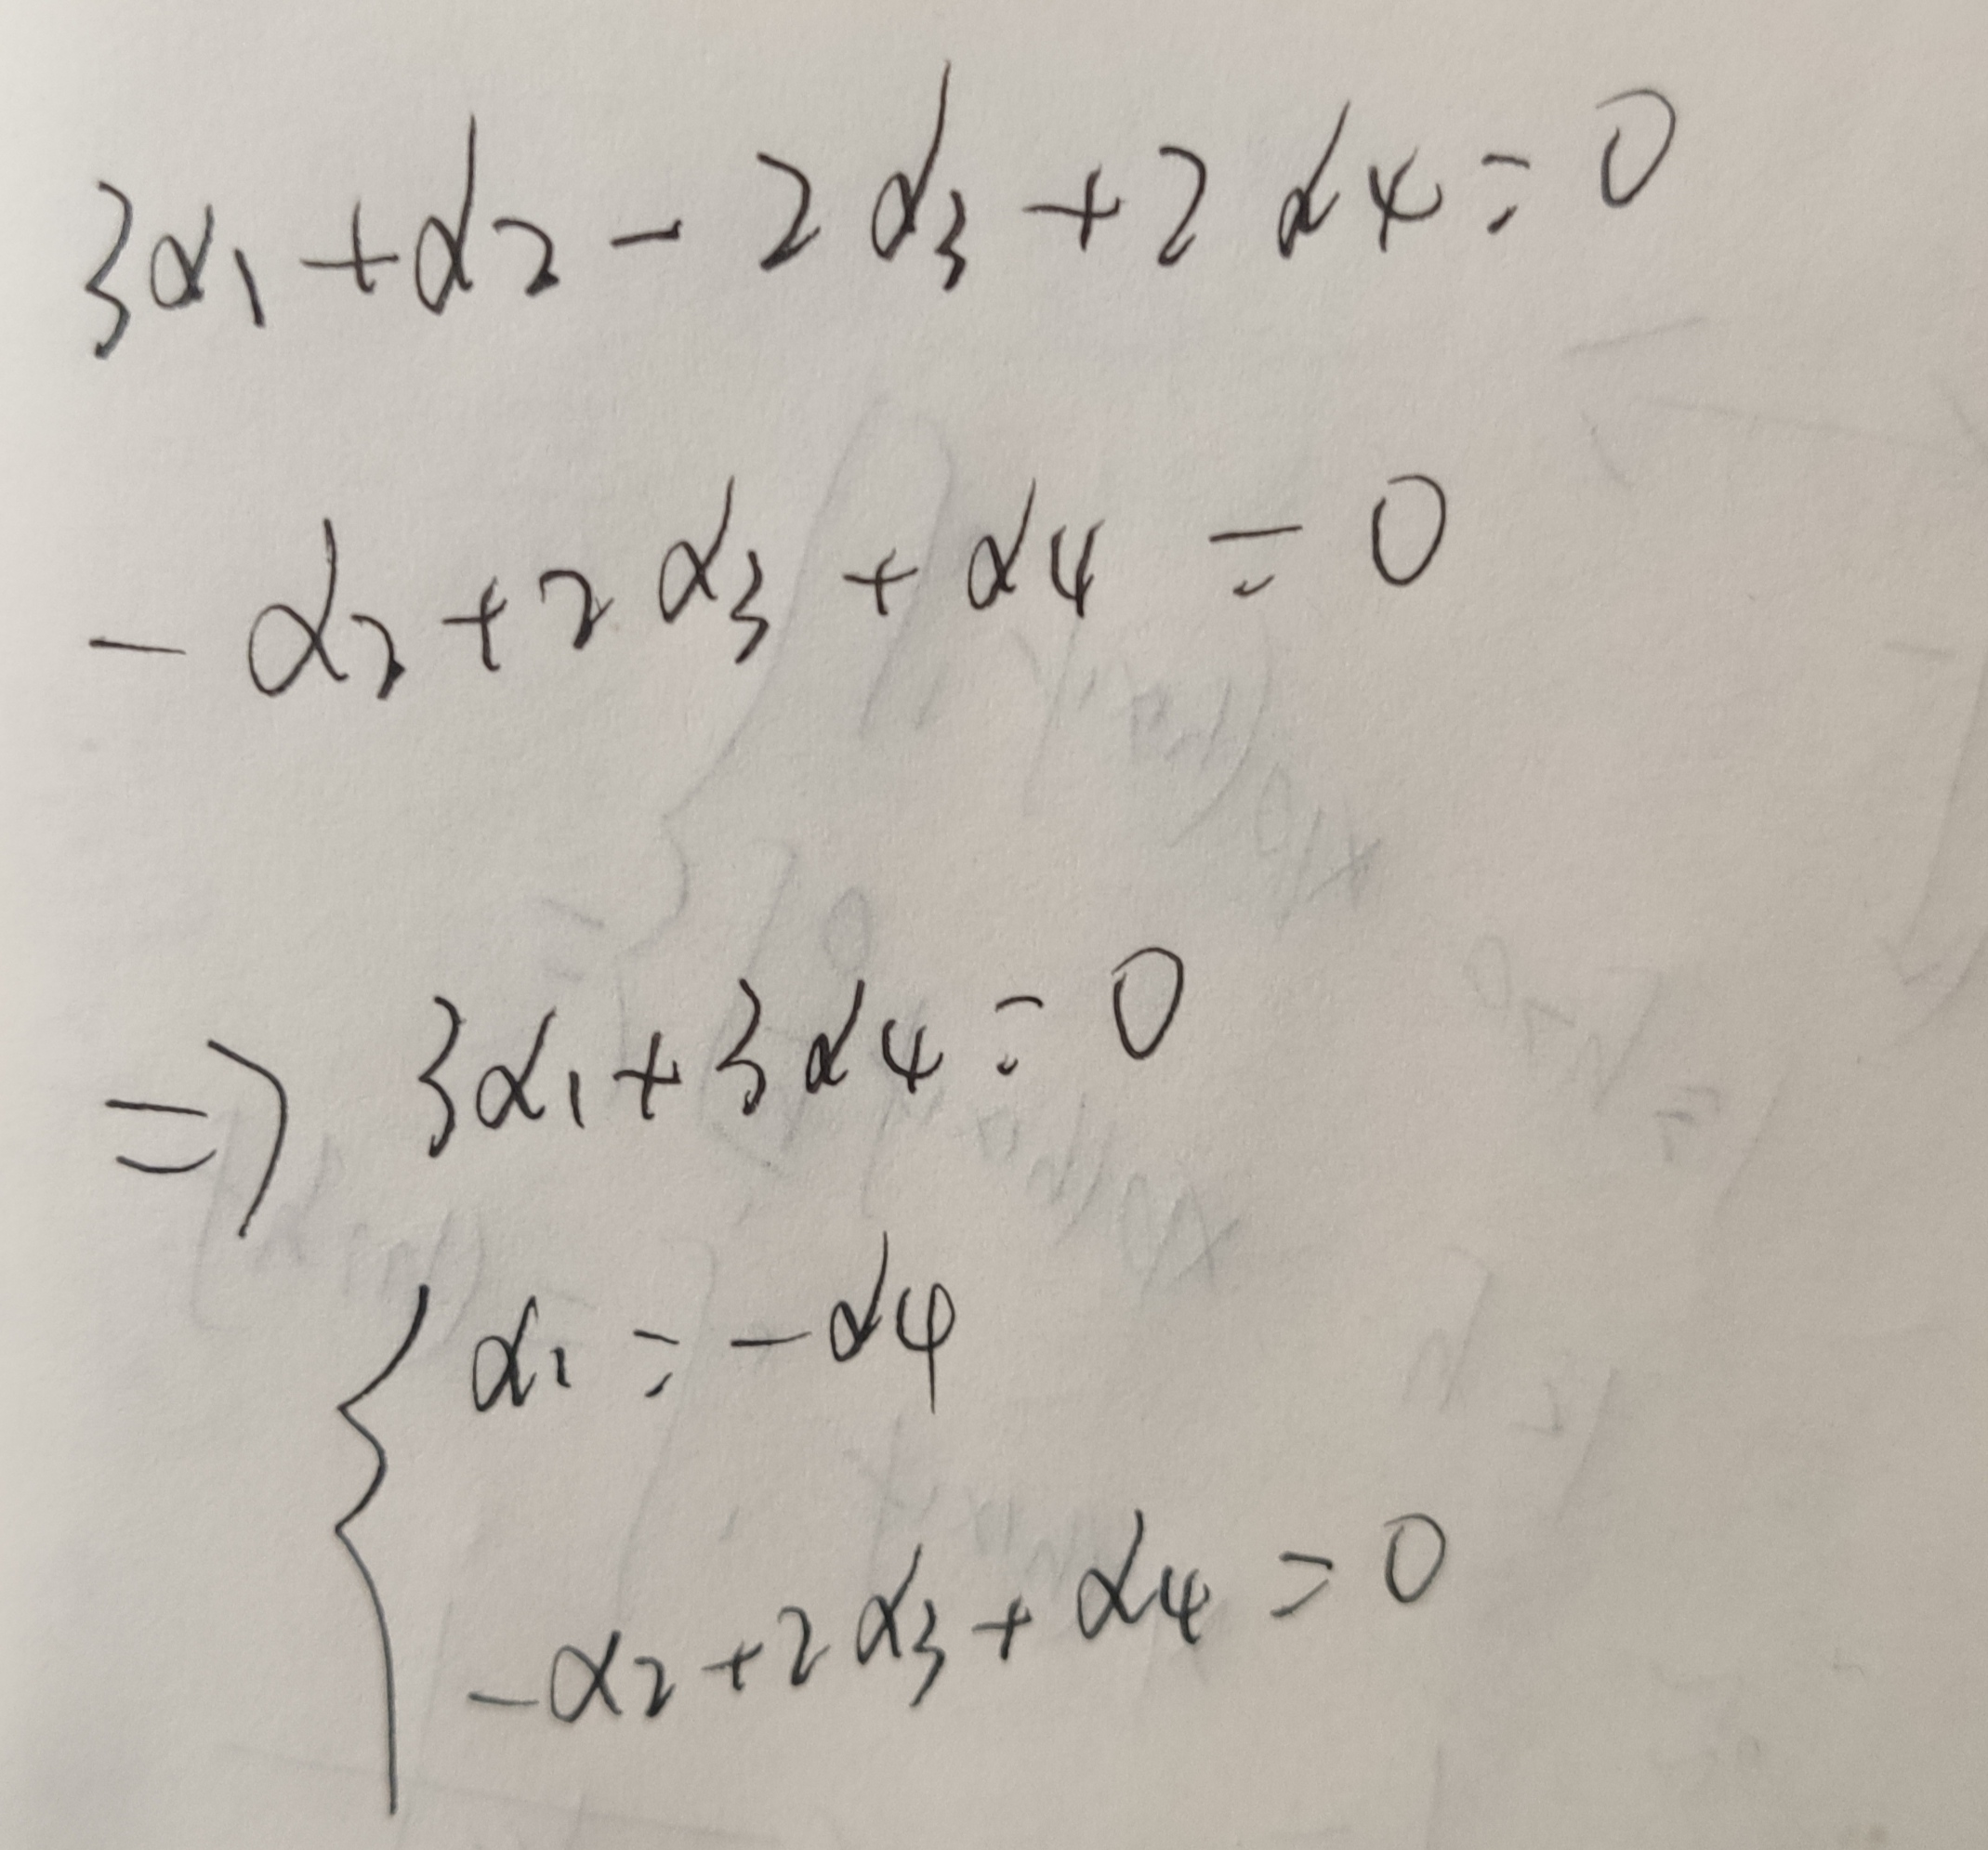 3α₁ + α₂ - 2α₃ + 2α₄ = 0
- α₂ + 2α₃ + α₄ = 0
⇒ 3α₁ + 3α₄ = 0
{ α₁ = -α₄
-α₂ + 2α₃ + α₄ = 0